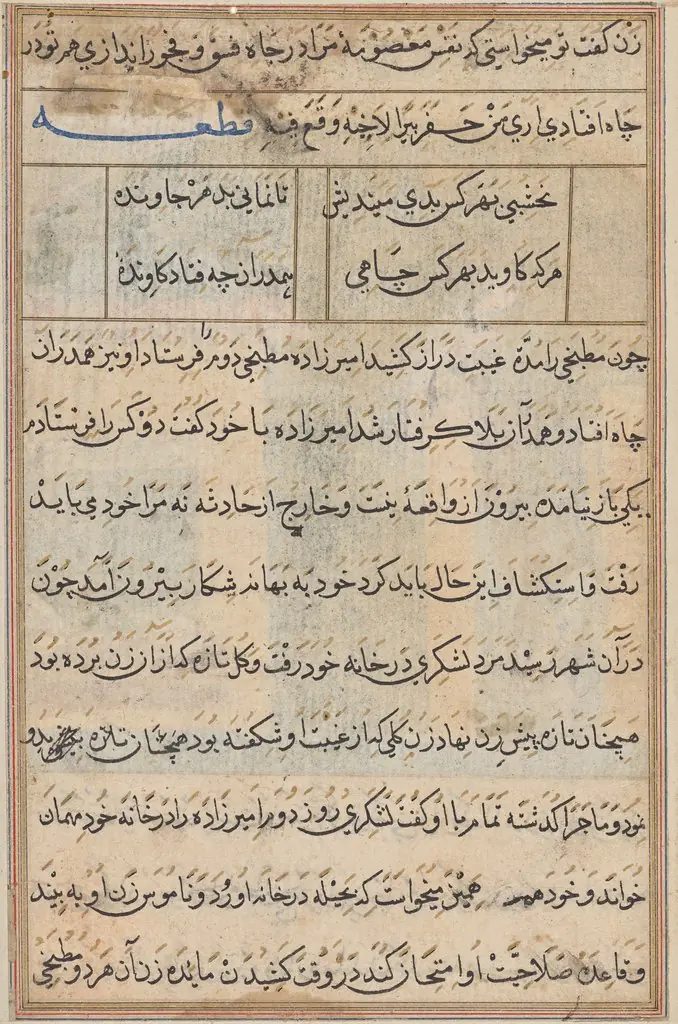 زن کفت تو میخواستی که نفس معصومهٔ مرا در چاه فسق و فجور اندازی هم تو در
چاه افتادی اری من حفر بیرا لاخیه وقع فیه قطعه
نخشبی بهر کس بدی میندیش تا نمانی بدهر جاونده
هر که کاوید بهر کس چاهی همدران چه فتاد کاوندهٔ
چون مطبخی را مدّة غیبت دراز کشید امیرزاده مطبخی دوم را فرستاد او نیز همدران
چاه افتاد و همدران بلا کرفتار شد امیرزاده با خود کفت دو کس را فرستادم
یکی باز نیامده بیرون از واقعهٔ نیست و خارج از حادثه نه مرا خود می باید
رفت و استکشاف این حال باید کرد خود به بهانه شکار بیرون آمد چون
در آن شهر رسید مرد لشکری در خانه خود رفت و کل تازه که از آن زن برده بود
همچنان تازه پیش زن نهاد زن کلی که از غیبت او شکفته بود همچنان تازه بدو
نمود و ماجرا کذشته تمام با او کفت لشکری روز دوم امیرزاده را در خانه خود مهمان
خواند و خود هم همین میخواست که بحیله در خانه او رود و ناموس زن او به بیند
و قاعدهٔ صلاحیّت او امتحان کند در وقت کشیدن مایده زن آن هر دو مطبخی